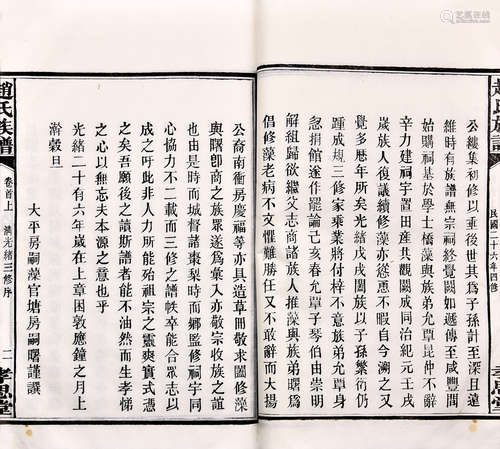 趙氏族譜
民國三十六年四修
孝思堂
公纘集初修以重後世其為子孫計至深且遠
維時有族譜無宗祠終覺闕如遞傳至咸豐間
始購祠基於學士橋藻與族弟允單昆仲不辭
辛力建祠宇置田產共觀闕成同治紀元壬戌
歲族人復議續修藻亦慫恿不暇自今溯之又
覺多曆年所矣光緒戊戌闔族以子孫繁衍仍
踵成規三修家乘業將付梓不意族弟允單忽
忽捐館遂作罷論己亥春允單子琴伯由崇明
解組歸欲繼父志商諸族人推藻與族弟戩曙
倡修藻老病不文懼難勝任又不敢辭而大揚
公裔南衝房慶福等亦具造草冊敬求闔修藻
與曙卽商之族眾遂為彙入亦敬宗收族之誼
也由是時而城督諸棗梨時而鄉監修祠宇同
心協力不二載而三修之譜帙卒能合眾志以
成之吁此非人力所能殆祖宗之靈爽實式憑
之矣吾願後之讀斯譜者能不油然而生孝悌
之心以無忘夫本源之意也乎
光緒二十有六年歲在上章困敦應鐘之月上
澣穀旦
大平房嗣藻官塘房嗣曙謹撰
趙氏族譜
卷首上 溯光緒三修序
二
孝思堂